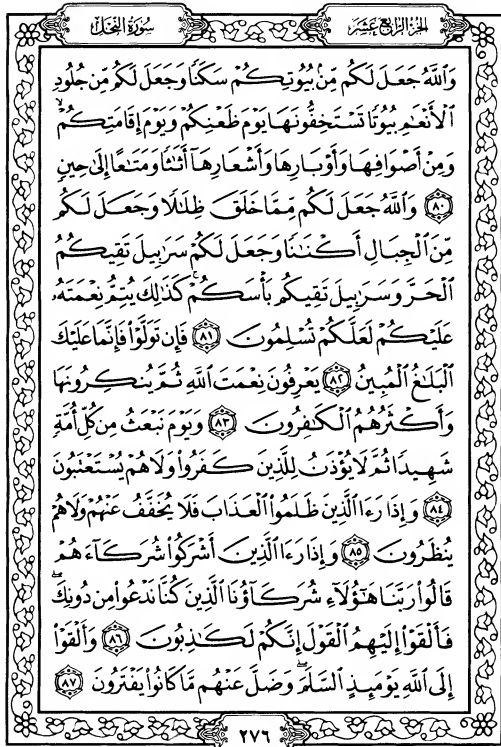 الجزء الرابع عشر
سورة النحل
وَاللَّهُ جَعَلَ لَكُم مِّنۢ بُيُوتِكُمْ سَكَنًا وَجَعَلَ لَكُم مِّن جُلُودِ
الْأَنْعَـٰمِ بُيُوتًا تَسْتَخِفُّونَهَا يَوْمَ ظَعْنِكُمْ وَيَوْمَ إِقَامَتِكُمْ ۙ
وَمِنْ أَصْوَافِهَا وَأَوْبَارِهَا وَأَشْعَارِهَآ أَثَـٰثًا وَمَتَـٰعًا إِلَىٰ حِينٍ
٨٠ وَاللَّهُ جَعَلَ لَكُم مِّمَّا خَلَقَ ظِلَـٰلًا وَجَعَلَ لَكُم
مِّنَ الْجِبَالِ أَكْنَـٰنًا وَجَعَلَ لَكُمْ سَرَٰبِيلَ تَقِيكُمُ
الْحَرَّ وَسَرَٰبِيلَ تَقِيكُم بَأْسَكُمْ ۚ كَذَٰلِكَ يُتِمُّ نِعْمَتَهُۥ
عَلَيْكُمْ لَعَلَّكُمْ تُسْلِمُونَ ٨١ فَإِن تَوَلَّوْا۟ فَإِنَّمَا عَلَيْكَ
الْبَلَـٰغُ الْمُبِينُ ٨٢ يَعْرِفُونَ نِعْمَتَ اللَّهِ ثُمَّ يُنكِرُونَهَا
وَأَكْثَرُهُمُ الْكَـٰفِرُونَ ٨٣ وَيَوْمَ نَبْعَثُ مِن كُلِّ أُمَّةٍ
شَهِيدًا ثُمَّ لَا يُؤْذَنُ لِلَّذِينَ كَفَرُوا۟ وَلَا هُمْ يُسْتَعْتَبُونَ
٨٤ وَإِذَا رَءَا الَّذِينَ ظَلَمُوا۟ الْعَذَابَ فَلَا يُخَفَّفُ عَنْهُمْ وَلَا هُمْ
يُنظَرُونَ ٨٥ وَإِذَا رَءَا الَّذِينَ أَشْرَكُوا۟ شُرَكَآءَهُمْ
قَالُوا۟ رَبَّنَا هَـٰٓؤُلَآءِ شُرَكَآؤُنَا الَّذِينَ كُنَّا نَدْعُوا۟ مِن دُونِكَ ۖ
فَأَلْقَوْا۟ إِلَيْهِمُ الْقَوْلَ إِنَّكُمْ لَكَـٰذِبُونَ ٨٦ وَأَلْقَوْا۟
إِلَى اللَّهِ يَوْمَئِذٍ السَّلَمَ ۖ وَضَلَّ عَنْهُم مَّا كَانُوا۟ يَفْتَرُونَ ٨٧
٢٧٦